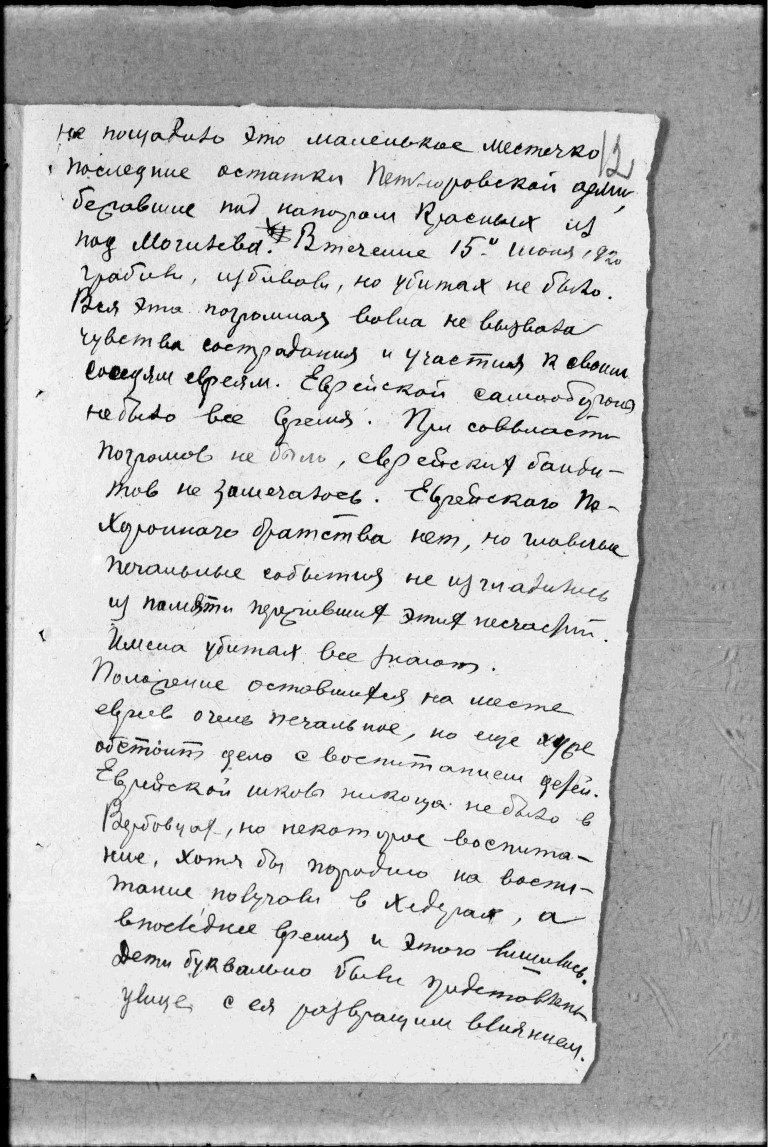 не пощадило это маленькое местечко
12
последние остатки Петлюровской армии,
бежавшие под напором Красных из
под Могилева. В течение 15и июня 1920
грабили, избивали, но убитых не было.
Вся эта погромная волна не вызвала
чувства сострадания и участия к своим
соседям евреям. Еврейской самообороны
не было все время. При соввласти
погромов не было, еврейских банди-
тов не замечалось. Еврейскаго По-
хороннаго братства нет, но главные
печальные события не изгладились
из памяти переживших этих несчастий.
Имена убитых все знают.
Положение оставшихся на месте
евреев очень печальное, но еще хуже
обстоит дело с воспитанием детей.
Еврейской школы никогда не было в
Вербовцах, но некоторое воспита-
ние, хотя бы на воспи-
тание получали в хедерах, а
в последнее время и этого лишились.
Дети буквально были предоставлены
улице с ея развращим влиянием.